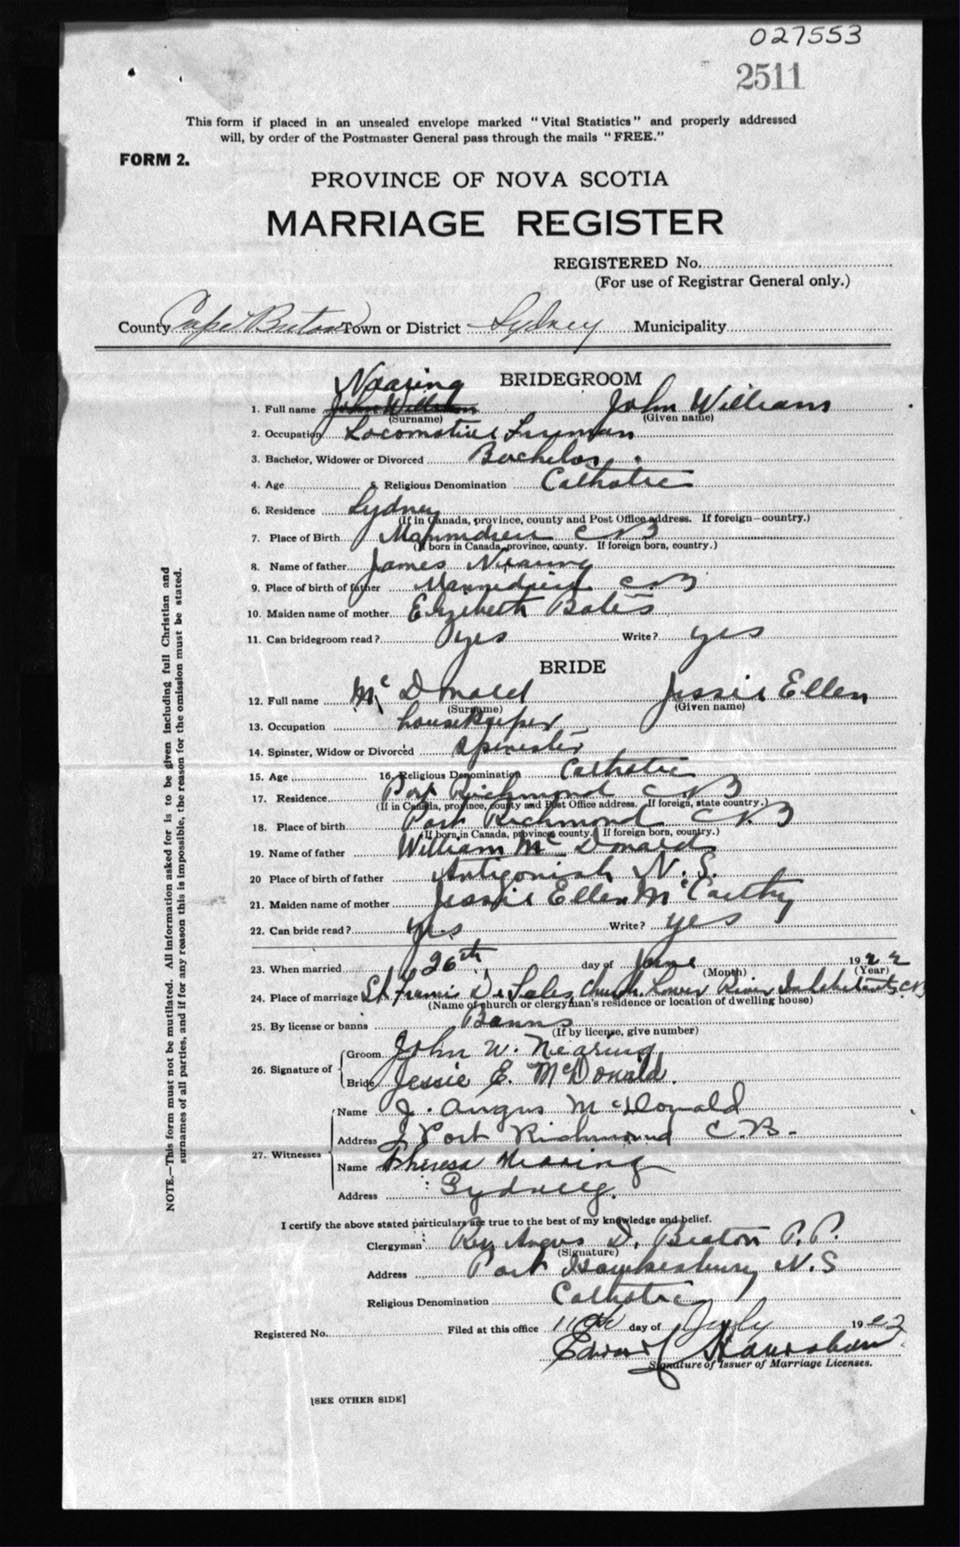 027553
2511
This form if placed in an unsealed envelope marked "Vital Statistics" and properly addressed
will, by order of the Postmaster General pass through the mails "FREE."
FORM 2.
PROVINCE OF NOVA SCOTIA
MARRIAGE REGISTER
REGISTERED No.
(For use of Registrar General only.)
County Cape Breton Town or District Sydney Municipality
BRIDEGROOM
Nearing
1. Full name John William John William
(Surname) (Given name)
2. Occupation Locomotive Fireman
3. Bachelor, Widower or Divorced Bachelor
4. Age 5. Religious Denomination Catholic
6. Residence Sydney
(If in Canada, province, county and Post Office address. If foreign—country.)
7. Place of Birth CB
(If born in Canada, province, county. If foreign born, country.)
8. Name of father James Nearing
9. Place of birth of father CB
10. Maiden name of mother Elizebeth Bates
11. Can bridegroom read? yes Write? yes
BRIDE
12. Full name Mc Donald Jessie Ellen
(Surname) (Given name)
13. Occupation housekeeper
14. Spinster, Widow or Divorced Spinester
15. Age 16. Religious Denomination Catholic
17. Residence Port Richmond CB
(If in Canada, province, county and Post Office address. If foreign, state country.)
18. Place of birth Port Richmond CB
(If born in Canada, province, county. If foreign born, country.)
19. Name of father William Mc Donald
20 Place of birth of father Antigonish N.S.
21. Maiden name of mother Jessie Ellen McCarthy
22. Can bride read? yes Write? yes
23. When married 26th day of June 1922
(Month) (Year)
24. Place of marriage St Francis De Sales Church Lower River Inhabitants, C.B
(Name of church or clergyman's residence or location of dwelling house)
25. By license or banns Banns
(If by license, give number)
26. Signature of
Groom John W. Nearing
Bride Jessie E. McDonald.
27. Witnesses
Name J. Angus McDonald
Address Port Richmond CB.
Name Theresa Nearing
Address Sydney.
I certify the above stated particulars are true to the best of my knowledge and belief.
Clergyman Rev Angus D. Beaton P.P.
(Signature)
Address Port Hawkesbury N.S
Religious Denomination Catholic
Registered No. Filed at this office 11th day of July 1922
Signature of Issuer of Marriage Licenses.
[SEE OTHER SIDE]
NOTE.—This form must not be mutilated. All information asked for is to be given including full Christian and
surnames of all parties, and if for any reason this is impossible, the reason for the omission must be stated.